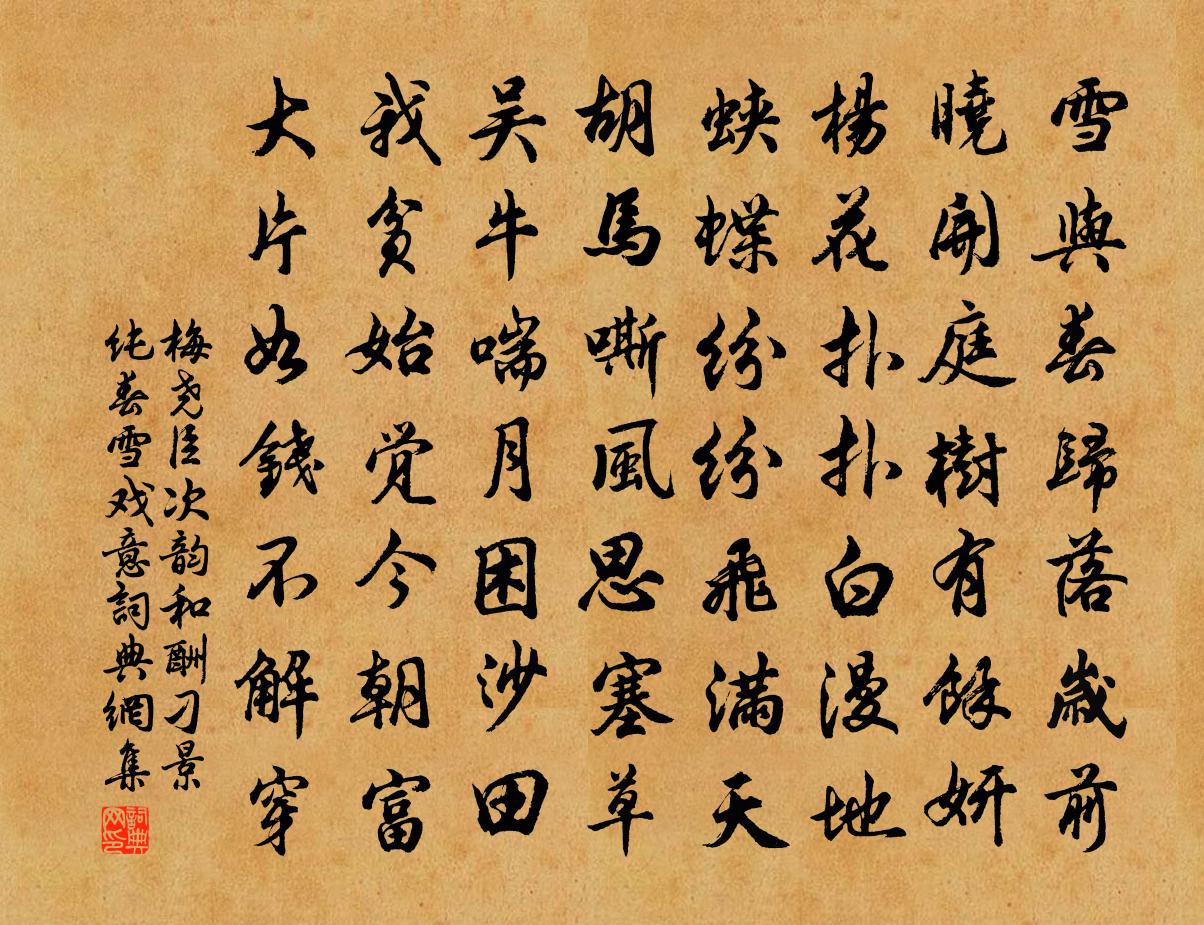 雪與春歸落歲前
曉開庭樹有餘妍
楊花扑扑白漫地
蛺蝶紛紛飛滿天
胡馬嘶風思塞草
吴牛喘月困沙田
我貧始覺今朝富
大片如錢不解穿
梅尧臣次韵和酬刁景
纯春雪戏意詞典網集
詞典
网印